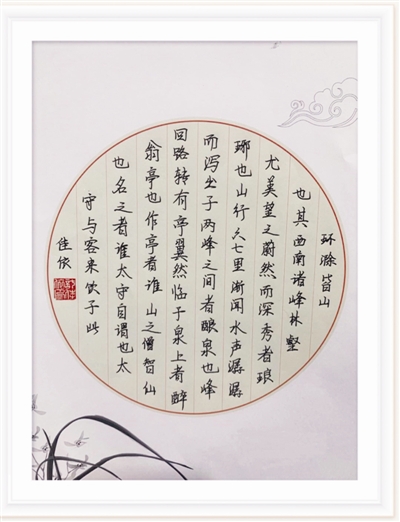 环滁皆山
也其西南诸峰林壑
尤美望之蔚然而深秀者琅
琊也山行六七里渐闻水声潺潺
而泻出于两峰之间者酿泉也峰
回路转有亭翼然临于泉上者醉
翁亭也作亭者谁山之僧智仙
也名之者谁太守自谓也太
守与客来饮于此
佳依